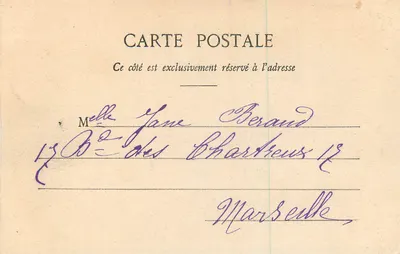 CARTE POSTALE
Ce côté est exclusivement réservé à l'adresse
Melle Jane Beraud
17 Bd des Chartreux 17
Marseille